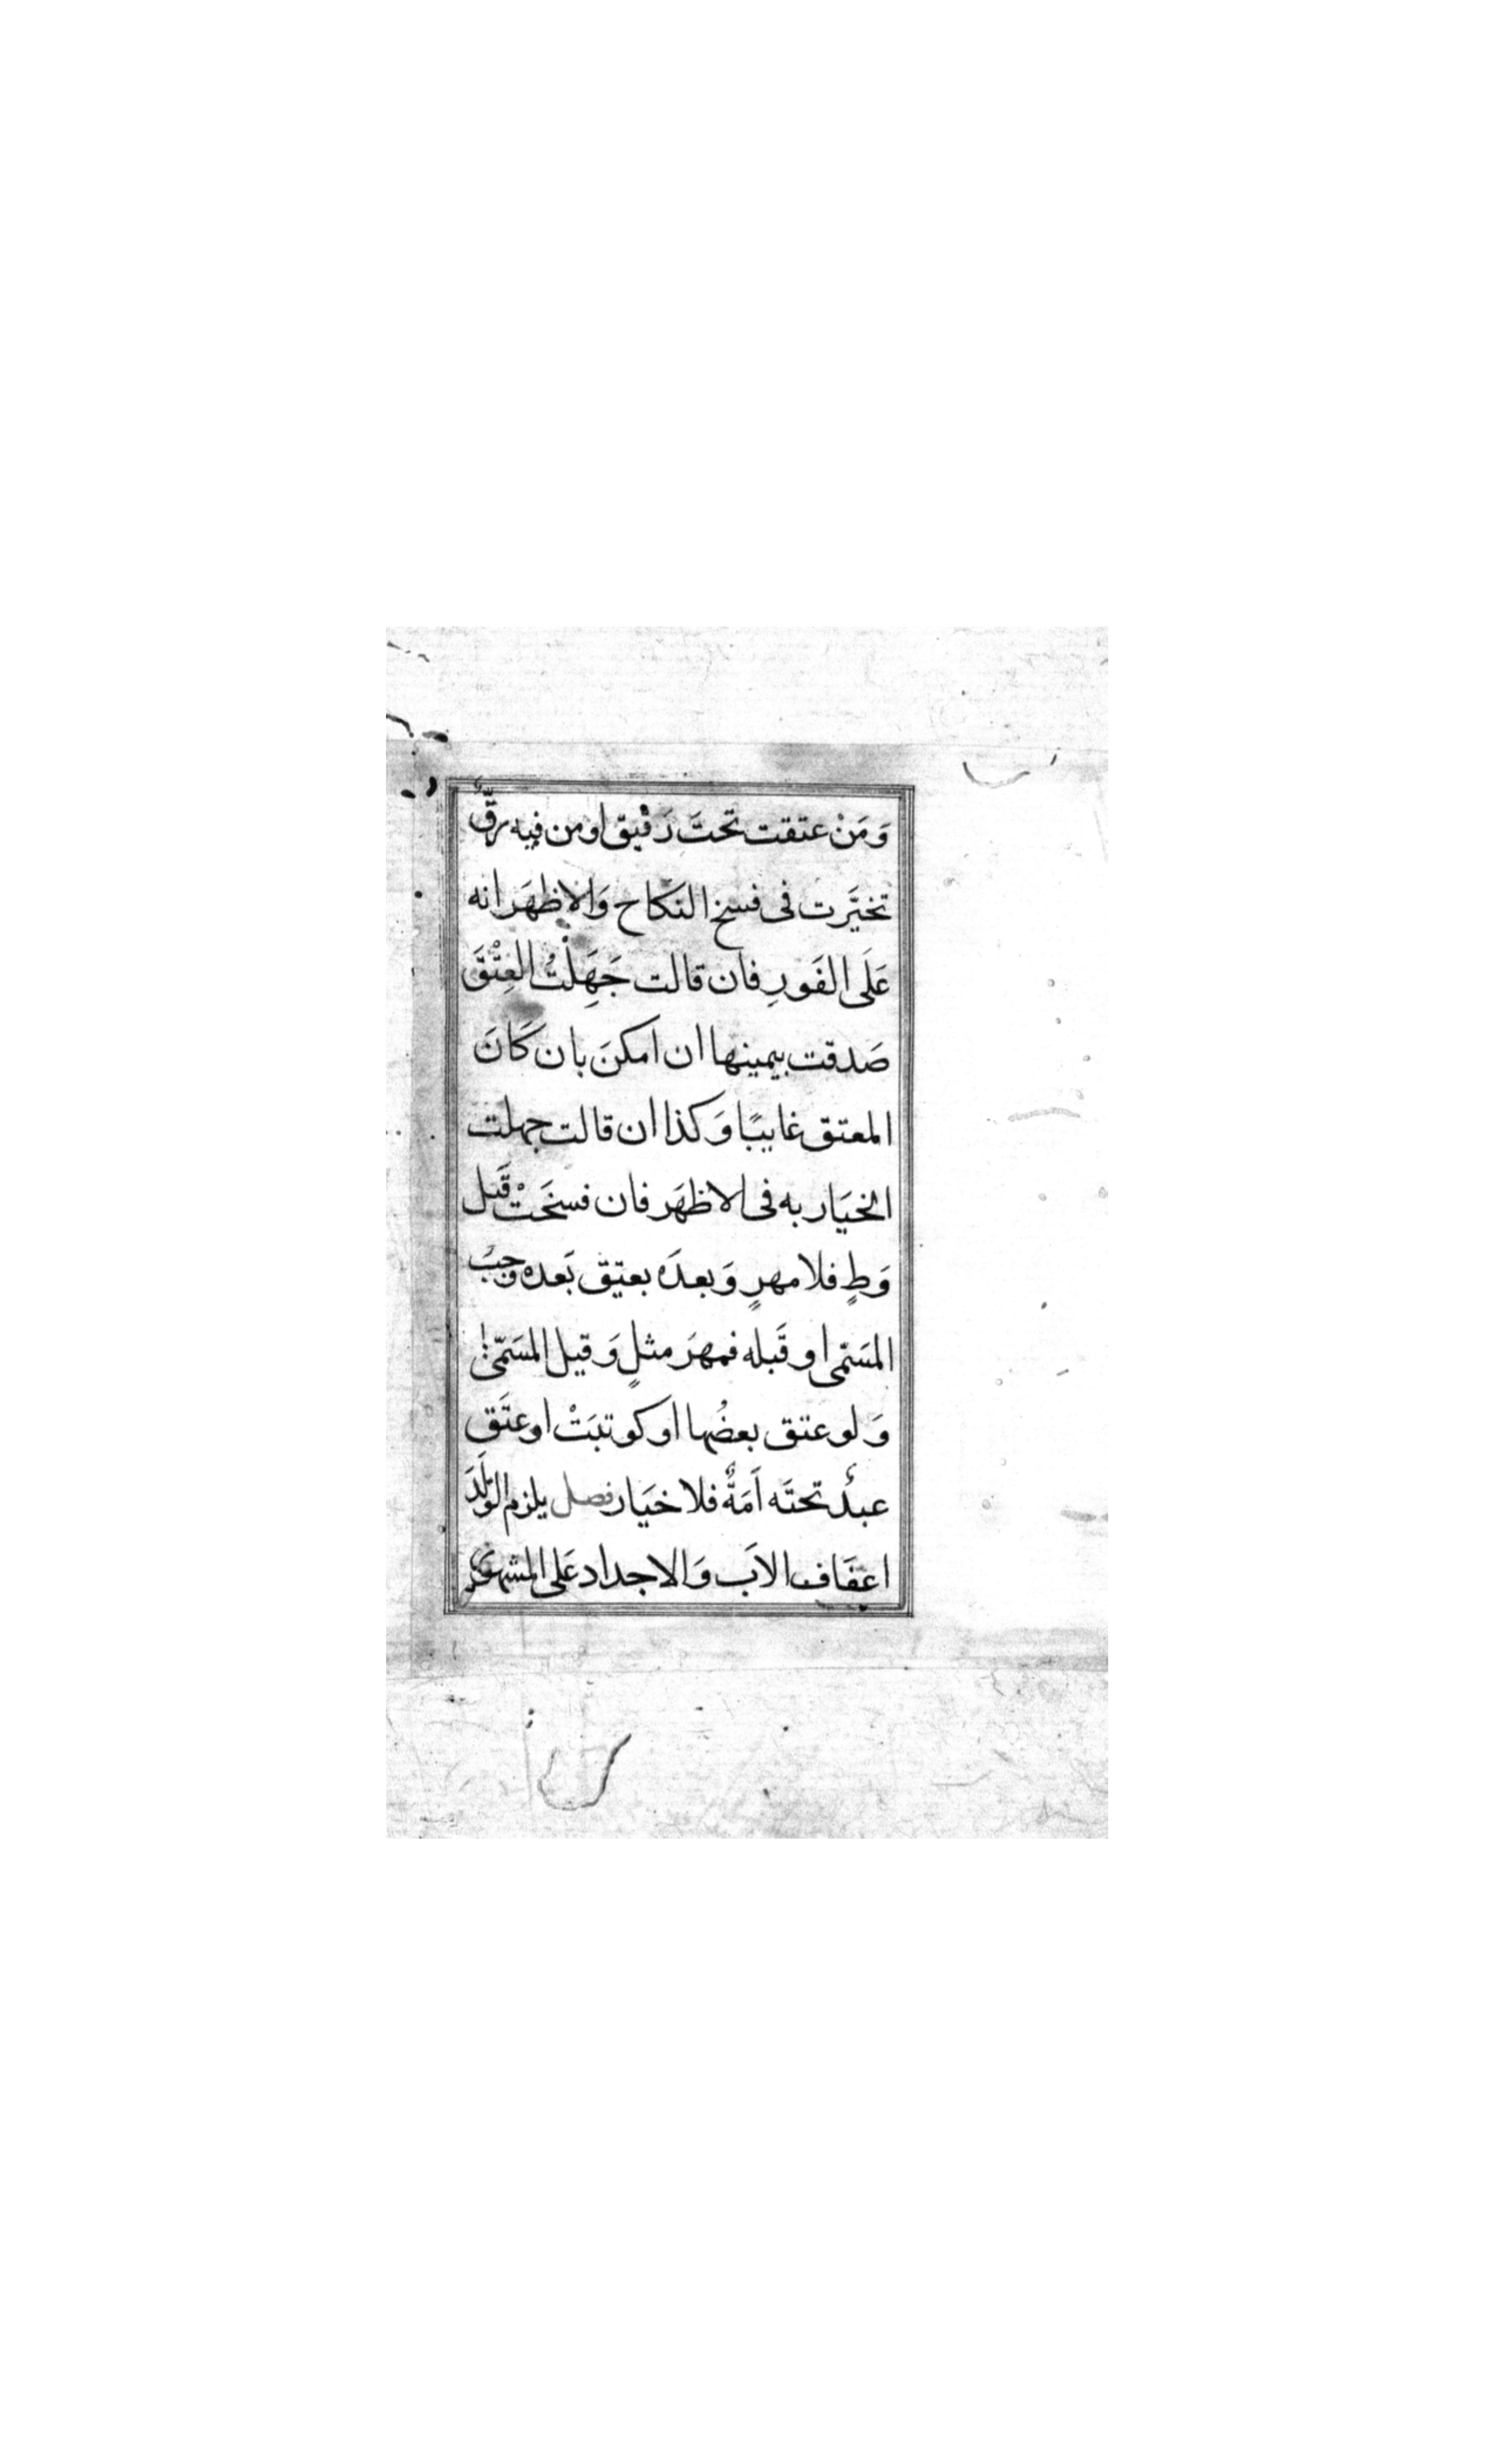 وَمَنْ عتقت تحتَ رَقيق اومن فيه رقٌّ
تخيَّرت فى فسخ النكاح وَالاظهَر انه
عَلَى الفَورِ فان قالت جَهِلْتُ العِتْقَ
صَدقت بيمينها ان امكنَ بان كَانَ
المعتق غايبًا وَكذا ان قالت جهلت
الخيَار به فى الاظهَر فان فسخَتْ قَبل
وَطٍ فلا مهرٍ وَبعدَه بعتق بَعده وجبَ
المسَمّى او قَبله فمهرَ مثلٍ وَقيل المسَمّىٰ
وَلو عتق بعضُها اوكوتبَتْ اوعتَق
عبدٌ تحتَه اَمَةٌ فلا خيَار فصل يلزم الوَلَدَ
اعفَاف الاَب وَالاجداد عَلى المشهور